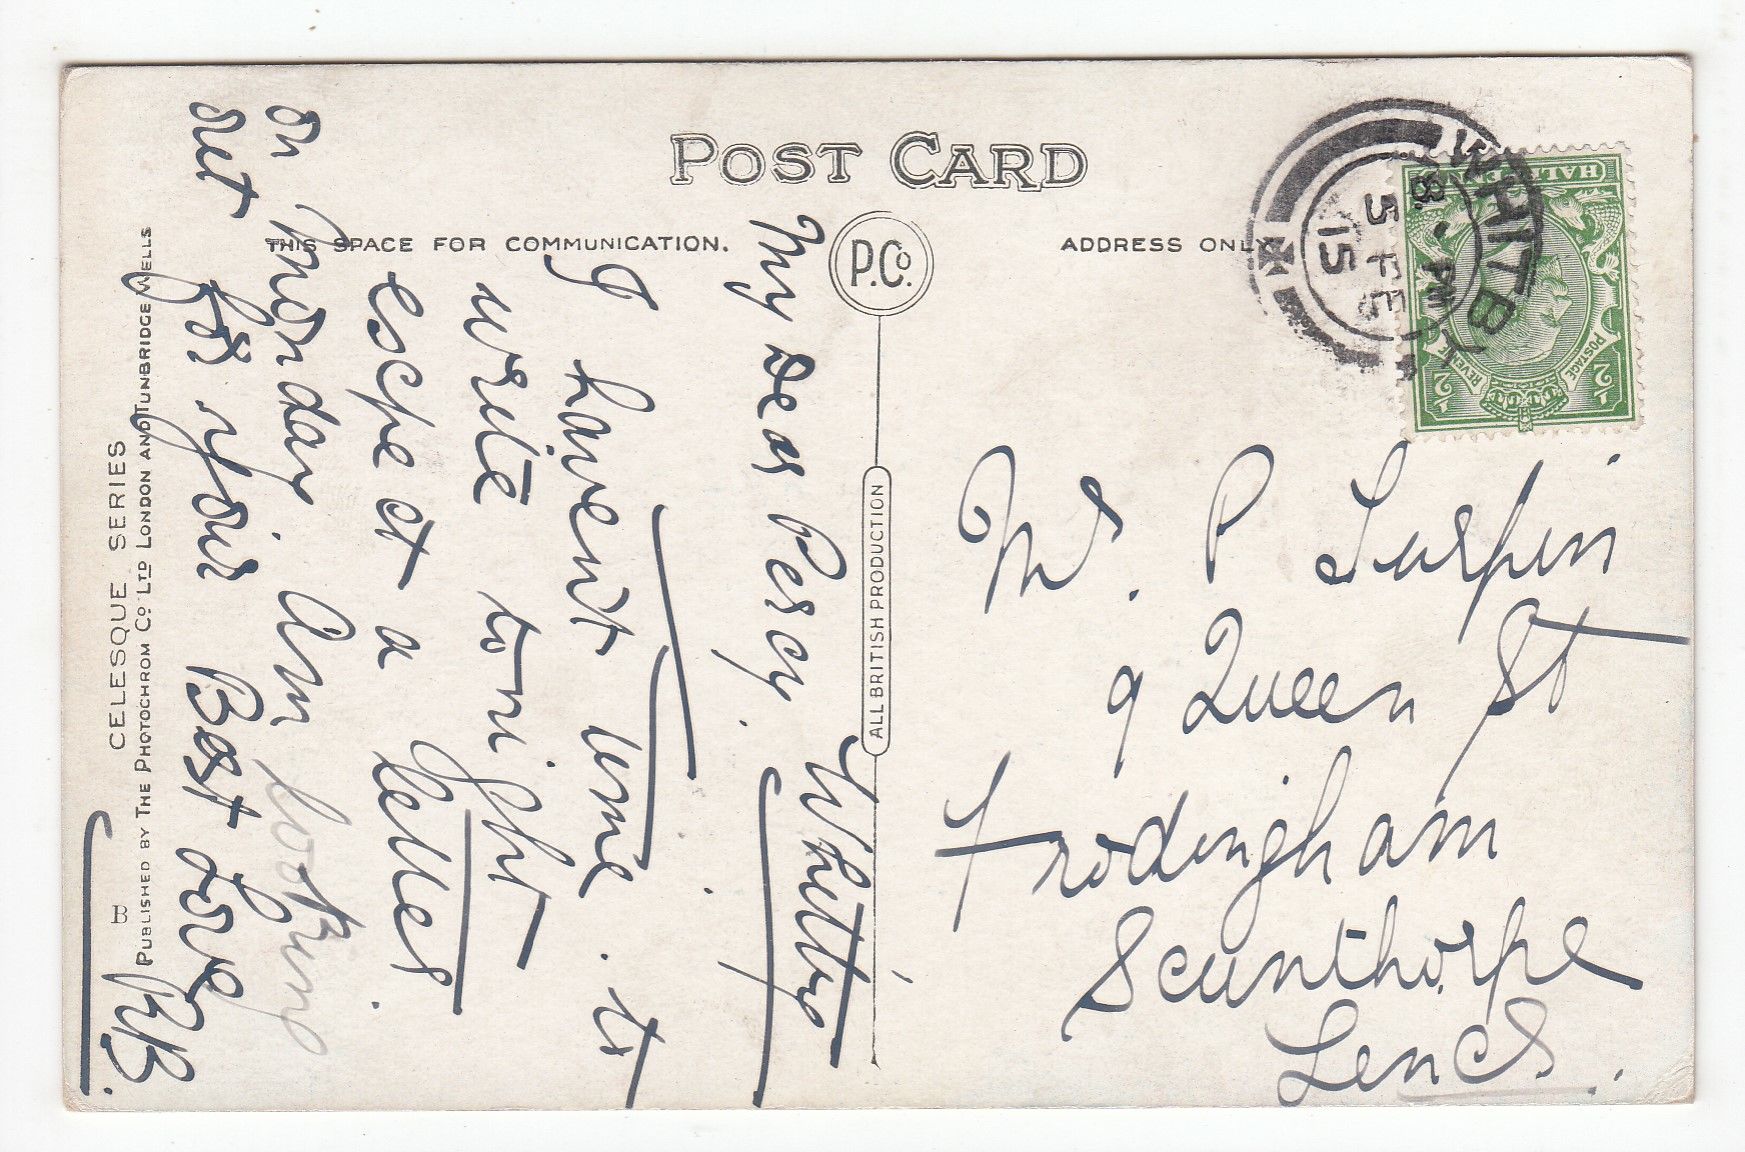 POST CARD
THIS SPACE FOR COMMUNICATION.
ADDRESS ONLY
P.Co.
ALL BRITISH PRODUCTION
CELESQUE SERIES
PUBLISHED BY THE PHOTOCHROM CO LTD LONDON AND TUNBRIDGE WELLS
B
WHITBY
8. PM
5 FE
15
HALFPENNY
POSTAGE
REVENUE
1/2
1/2
Whitby
My Dear Percy.
I havent time. to
write tonight
except a letter
on Monday am looking
out for your Best Love
B.
Mr. P
9 Queen St
Frodingham
Scunthorpe
Lincs.